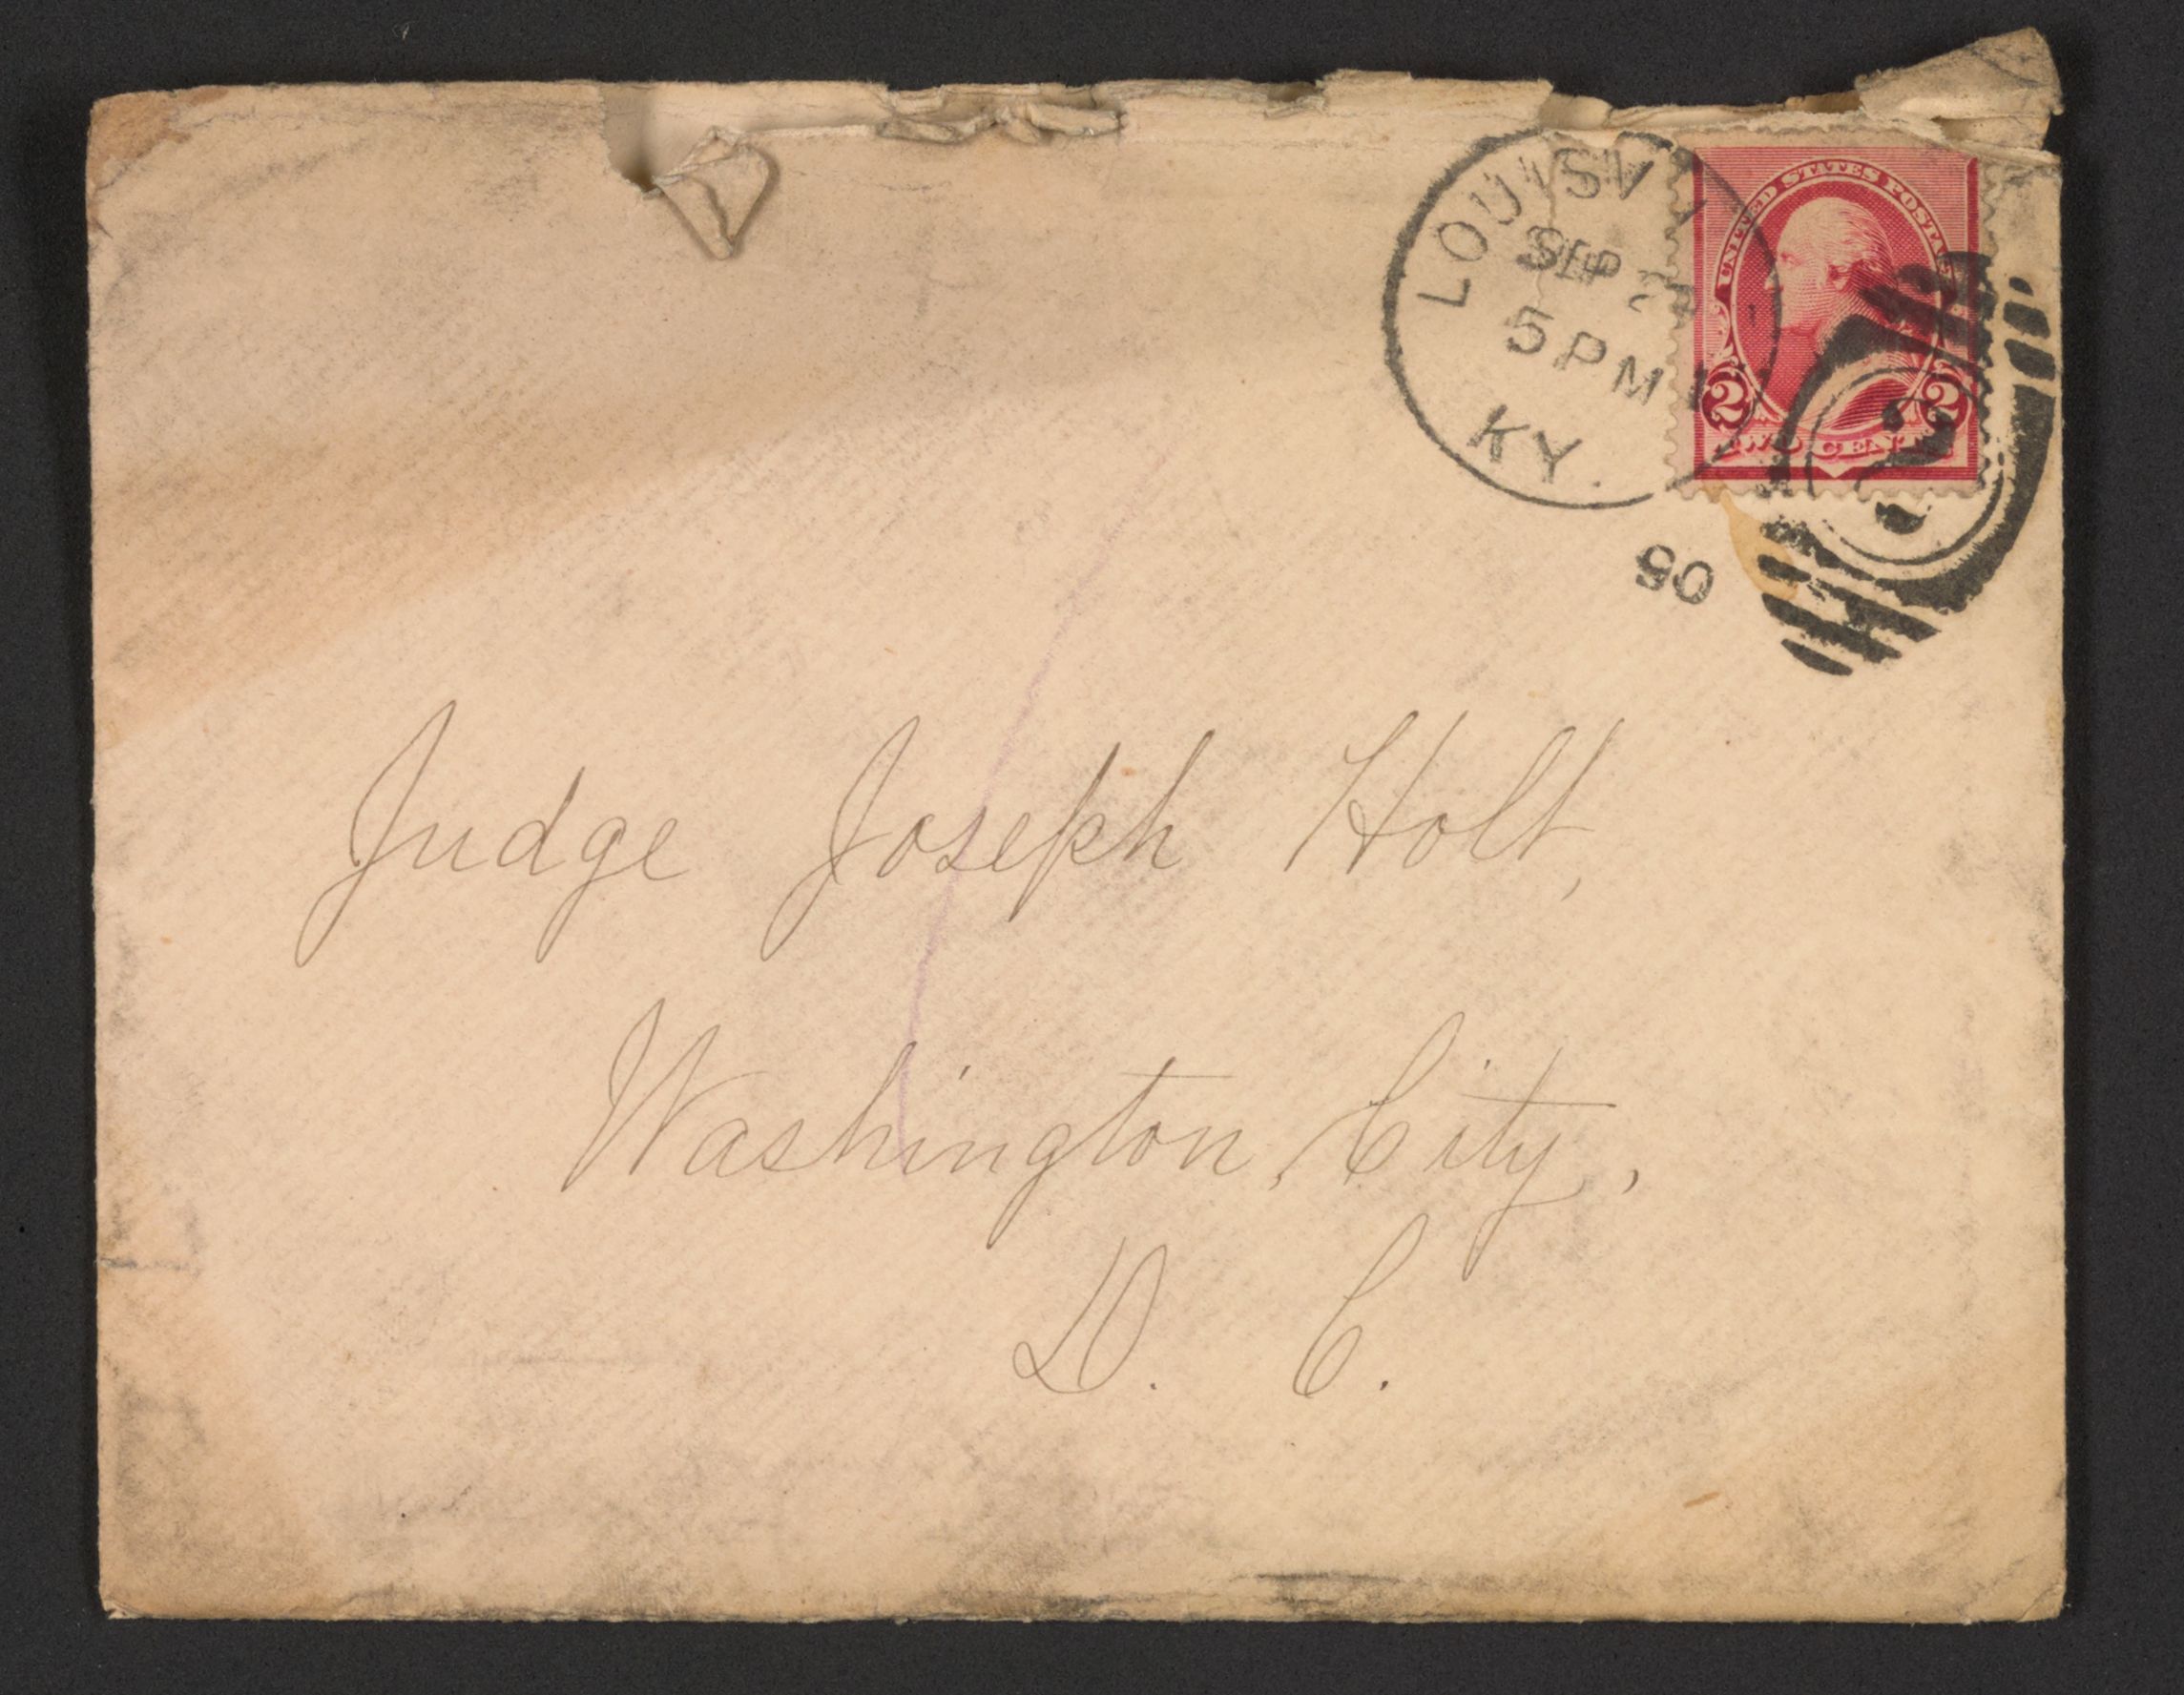 LOUISV
SEP 2
5 PM
KY.
90
UNITED STATES POSTAGE
2 2
TWO CENTS
2
Judge Joseph Holt,
Washington, City,
D. C.